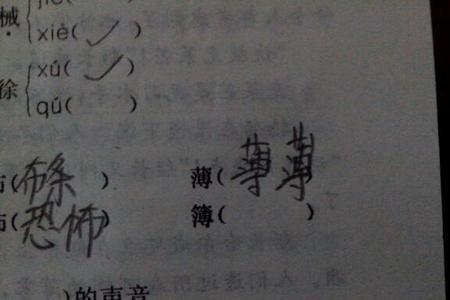 械
xiè(✓)
xú(✓)
徐
qú( )
(布条 ) 薄(薄薄
(恐怖) 簿( )
)的声音